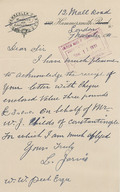 12 Mall Road
Hammersmith
London
Dear Sir
I have much pleasure
to acknowledge the receipt of
your letter with cheque
enclosed value three pounds
on behalf of Mr
W. J. Childs of Constantinople
for which I am much obliged
Yours Truly
L. Jarvis
W. W. Peet Esqr